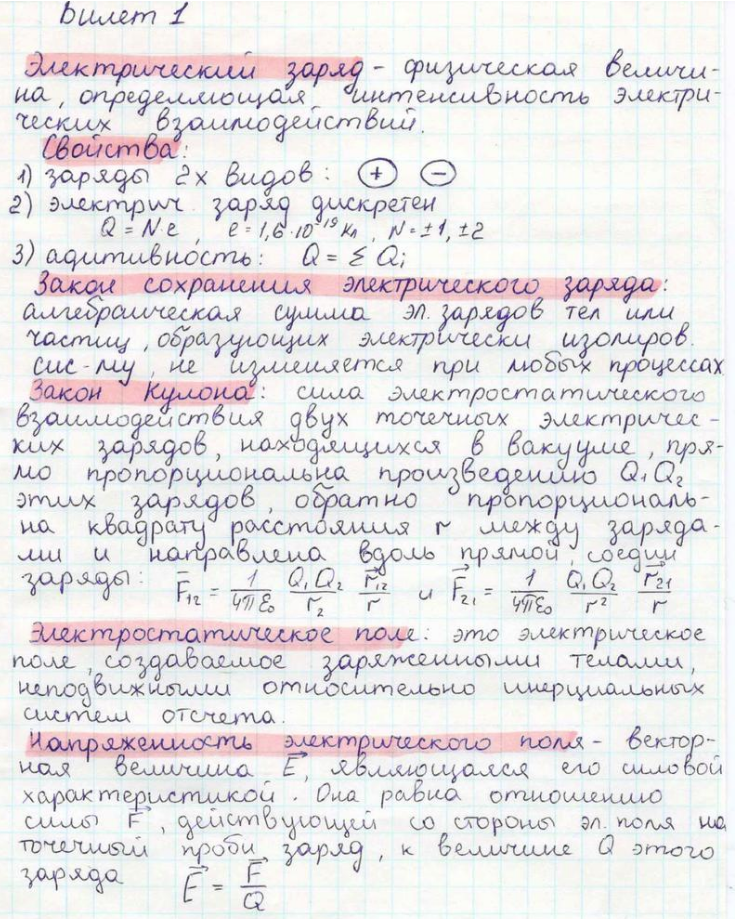 Билет 1
Электрический заряд - физическая величи-
на, определяющая интенсивность электри-
ческих взаимодействий.
Свойства:
1) заряды 2х видов: + −
2) электрич. заряд дискретен
Q = N·e, e = 1,6·10⁻¹⁹ Кл, N = ±1, ±2
3) адитивность: Q = Σ Qᵢ
Закон сохранения электрического заряда:
алгебраическая сумма эл. зарядов тел или
частиц, образующих электрически изолиров.
сис-му, не изменяется при любых процессах
Закон Кулона: сила электростатического
взаимодействия двух точечных электричес-
ких зарядов, находящихся в вакууме, пря-
мо пропорциональна произведению Q₁Q₂
этих зарядов, обратно пропорциональ-
на квадрату расстояния r между заряда-
ми и направлена вдоль прямой, соедин
заряды: F⃗₁₂ = 1/4πε₀ Q₁Q₂/r₂ r⃗₁₂/r и F⃗₂₁ = 1/4πε₀ Q₁Q₂/r² r⃗₂₁/r
Электростатическое поле: это электрическое
поле, создаваемое заряженными телами,
неподвижными относительно инерциальных
систем отсчета.
Напряженность электрического поля - вектор-
ная величина E⃗, являющаяся его силовой
характеристикой. Она равна отношению
силы F⃗, действующей со стороны эл. поля на
точечный пробн заряд, к величине Q этого
заряда E⃗ = F⃗/Q